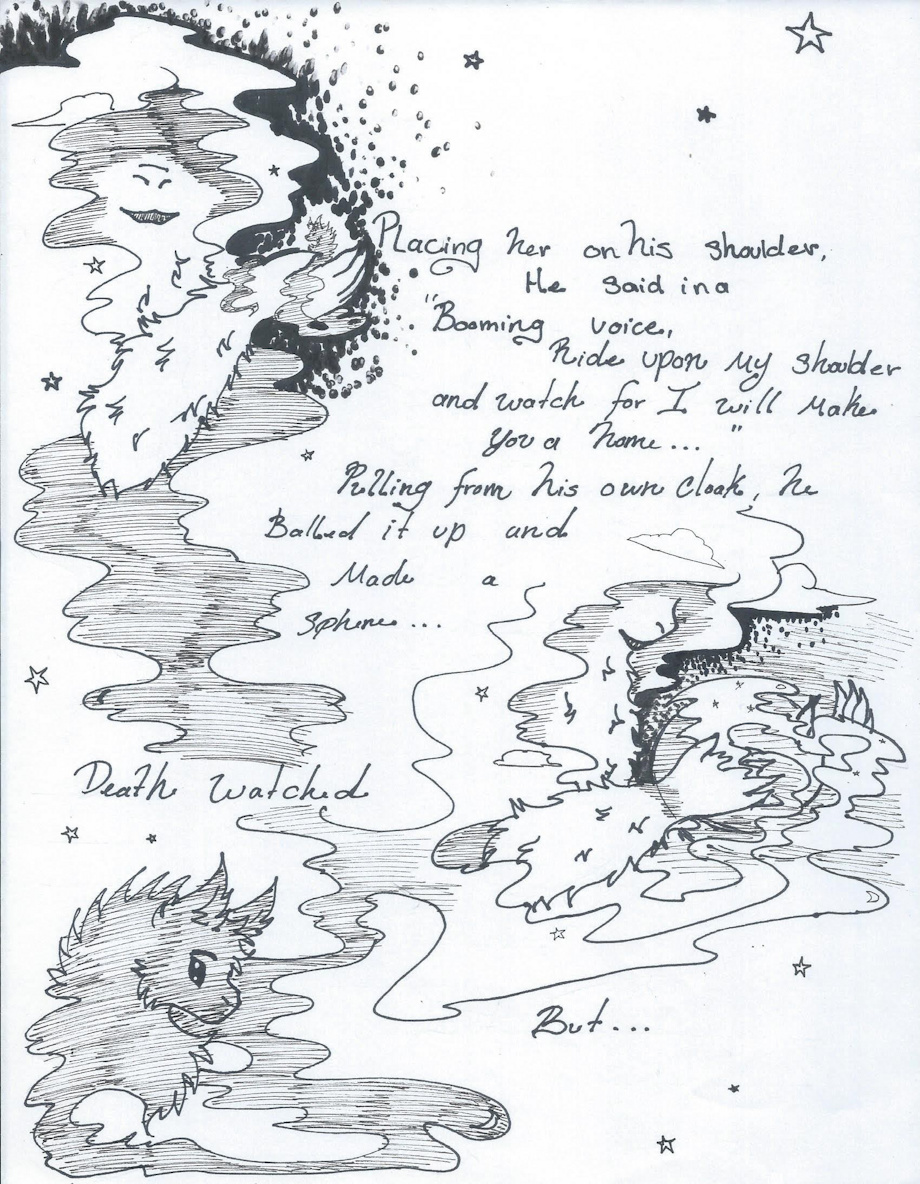 Placing her on his shoulder,
He said in a
"Booming voice,
Ride upon my shoulder
and watch for I will make
you a home... "
Pulling from his own cloak, he
Balled it up and
Made a
sphere...
Death watched
But...